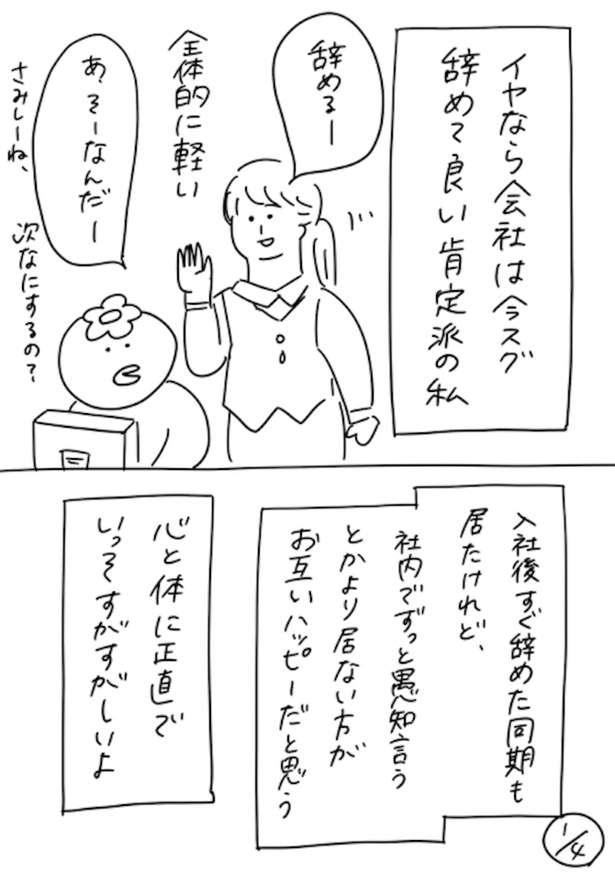 イヤなら会社は今スグ
辞めて良い肯定派の私
辞めるー
全体的に軽い
あ、そーなんだー
さみしーね、
次なにするの？
入社後すぐ辞めた同期も
居たけれど、
社内でずっと愚知言う
とかより居ない方が
お互いハッピーだと思う
心と体に正直で
いっそすがすがしいよ
1/4